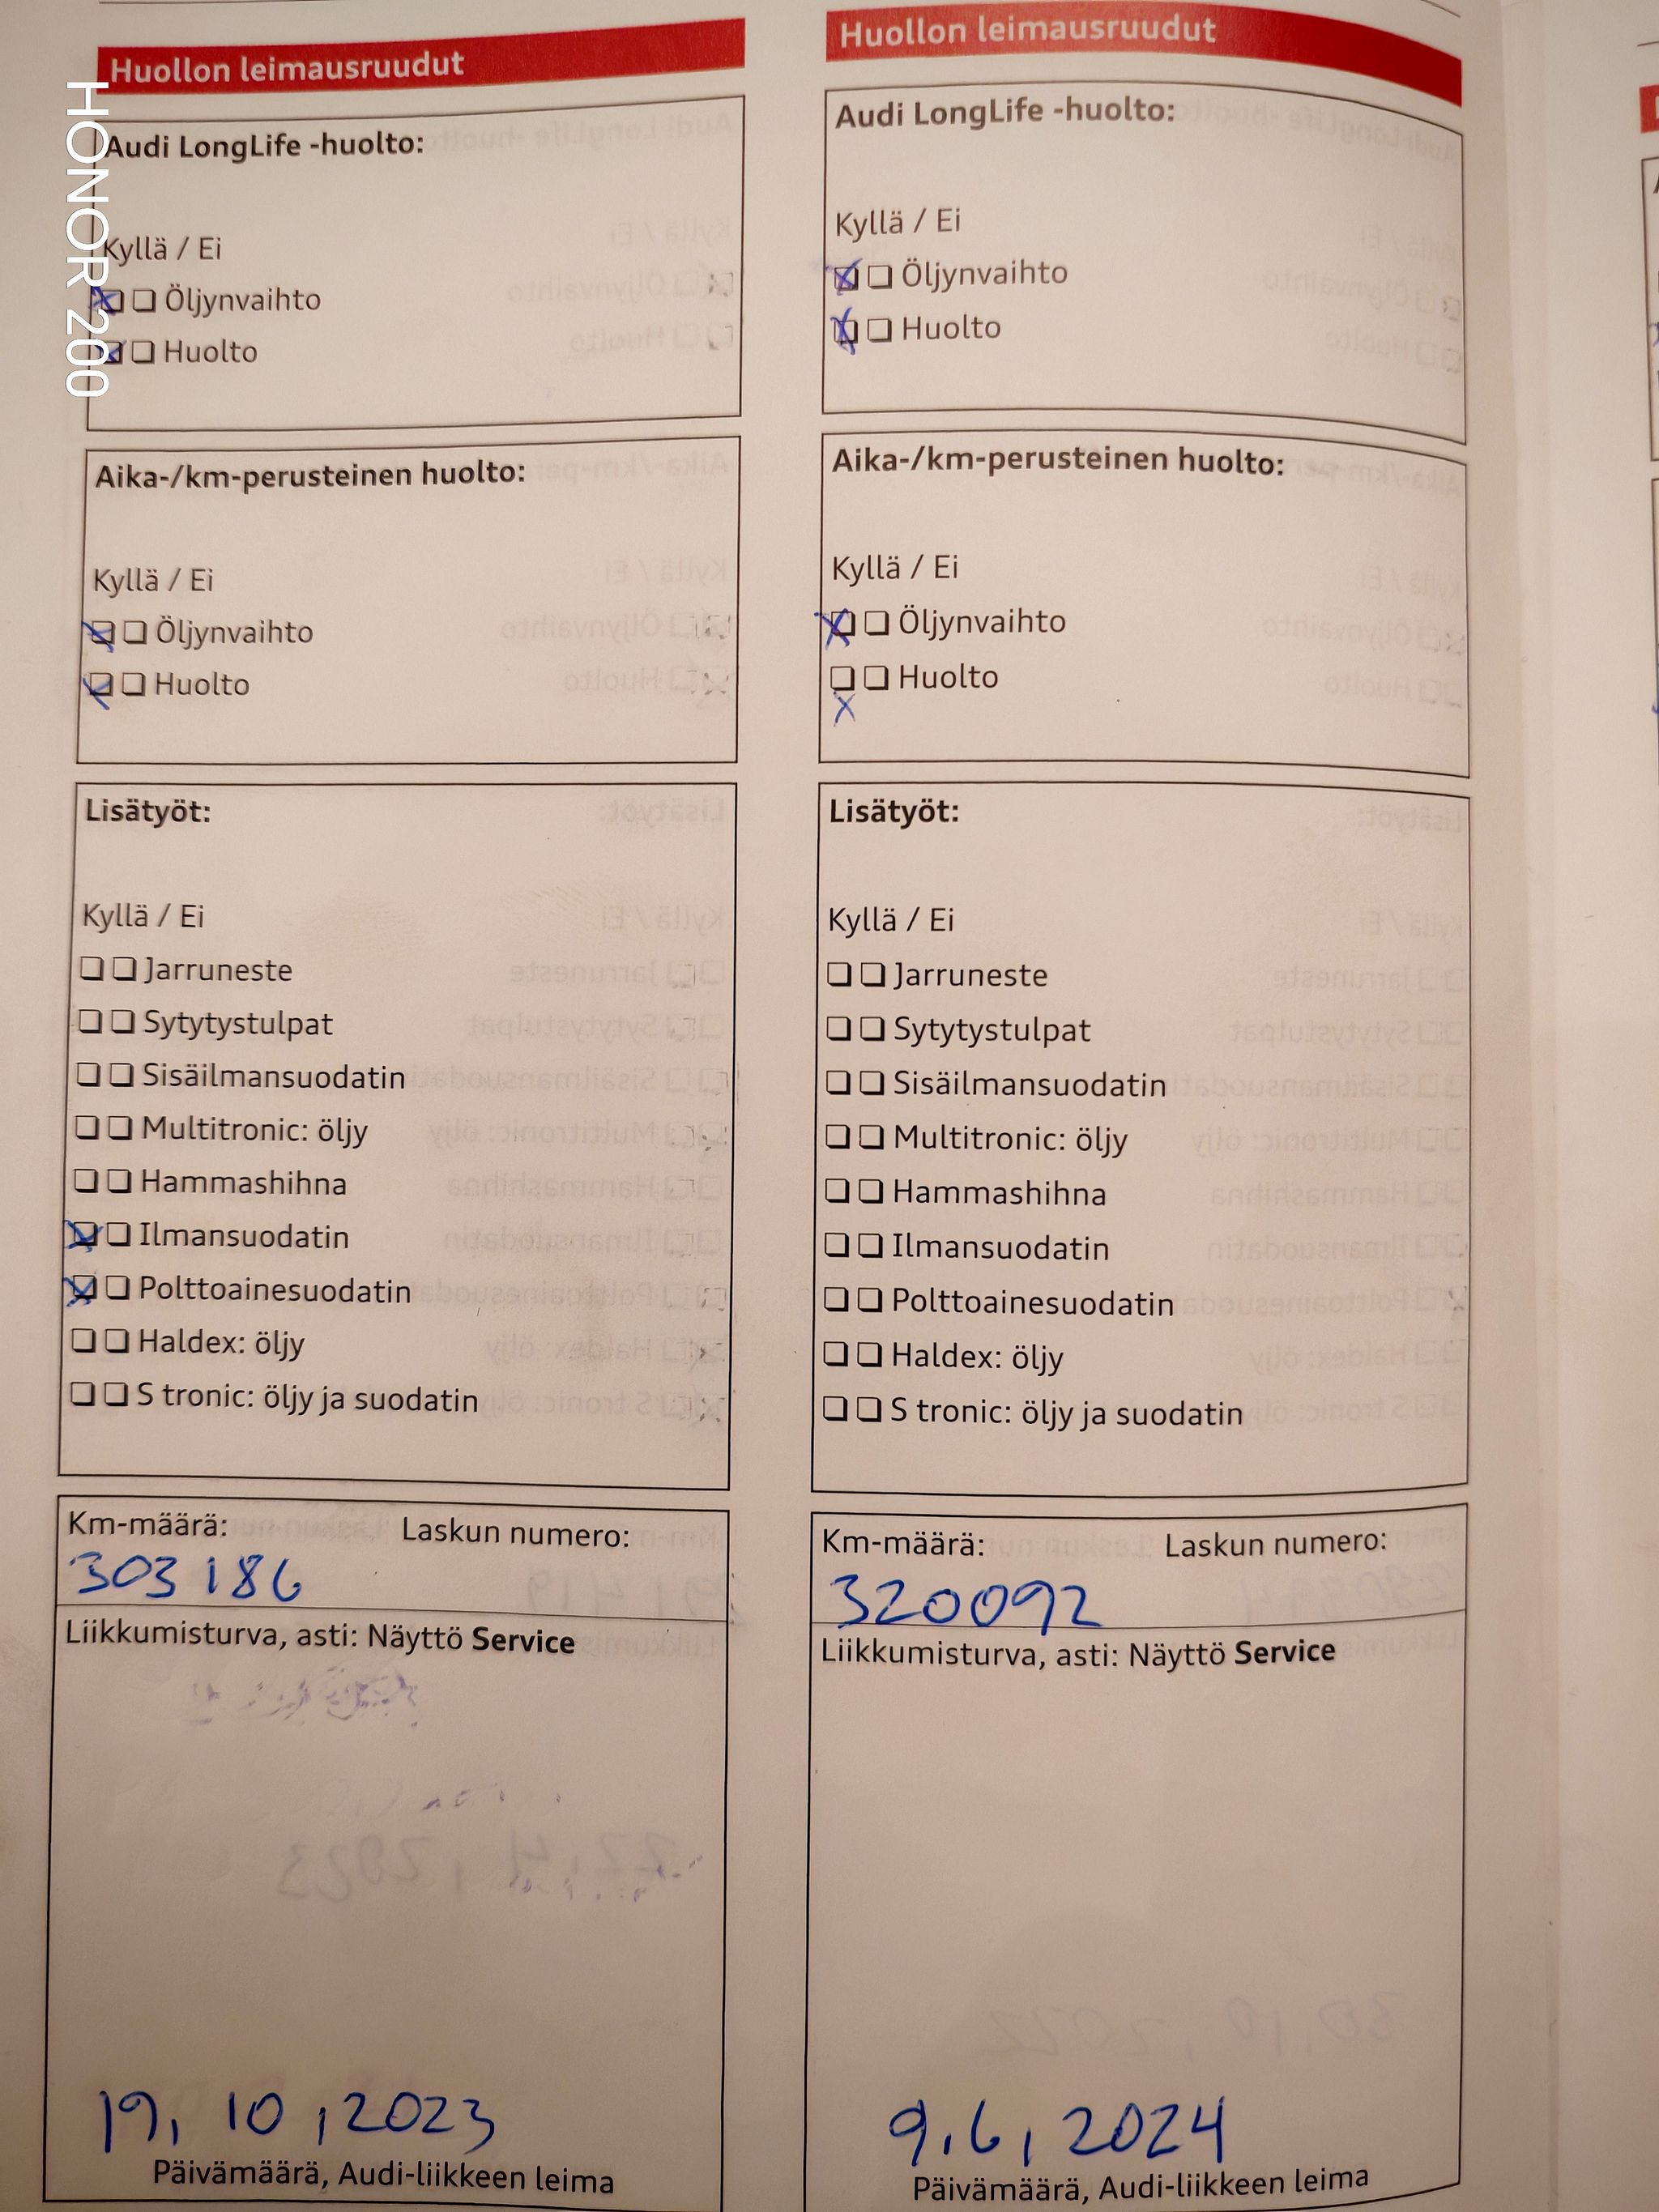 Huollon leimausruudut
Audi LongLife -huolto:
Kyllä / Ei
Öljynvaihto
Huolto
Aika-/km-perusteinen huolto:
Kyllä / Ei
Öljynvaihto
Huolto
Lisätyöt:
Kyllä / Ei
Jarruneste
Sytytystulpat
Sisäilmansuodatin
Multitronic: öljy
Hammashihna
Ilmansuodatin
Polttoainesuodatin
Haldex: öljy
S tronic: öljy ja suodatin
Km-määrä: Laskun numero:
303186
Liikkumisturva, asti: Näyttö Service
19, 10, 2023
Päivämäärä, Audi-liikkeen leima
Huollon leimausruudut
Audi LongLife -huolto:
Kyllä / Ei
Öljynvaihto
Huolto
Aika-/km-perusteinen huolto:
Kyllä / Ei
Öljynvaihto
Huolto
Lisätyöt:
Kyllä / Ei
Jarruneste
Sytytystulpat
Sisäilmansuodatin
Multitronic: öljy
Hammashihna
Ilmansuodatin
Polttoainesuodatin
Haldex: öljy
S tronic: öljy ja suodatin
Km-määrä: Laskun numero:
320092
Liikkumisturva, asti: Näyttö Service
9.6, 2024
Päivämäärä, Audi-liikkeen leima
HONOR 200